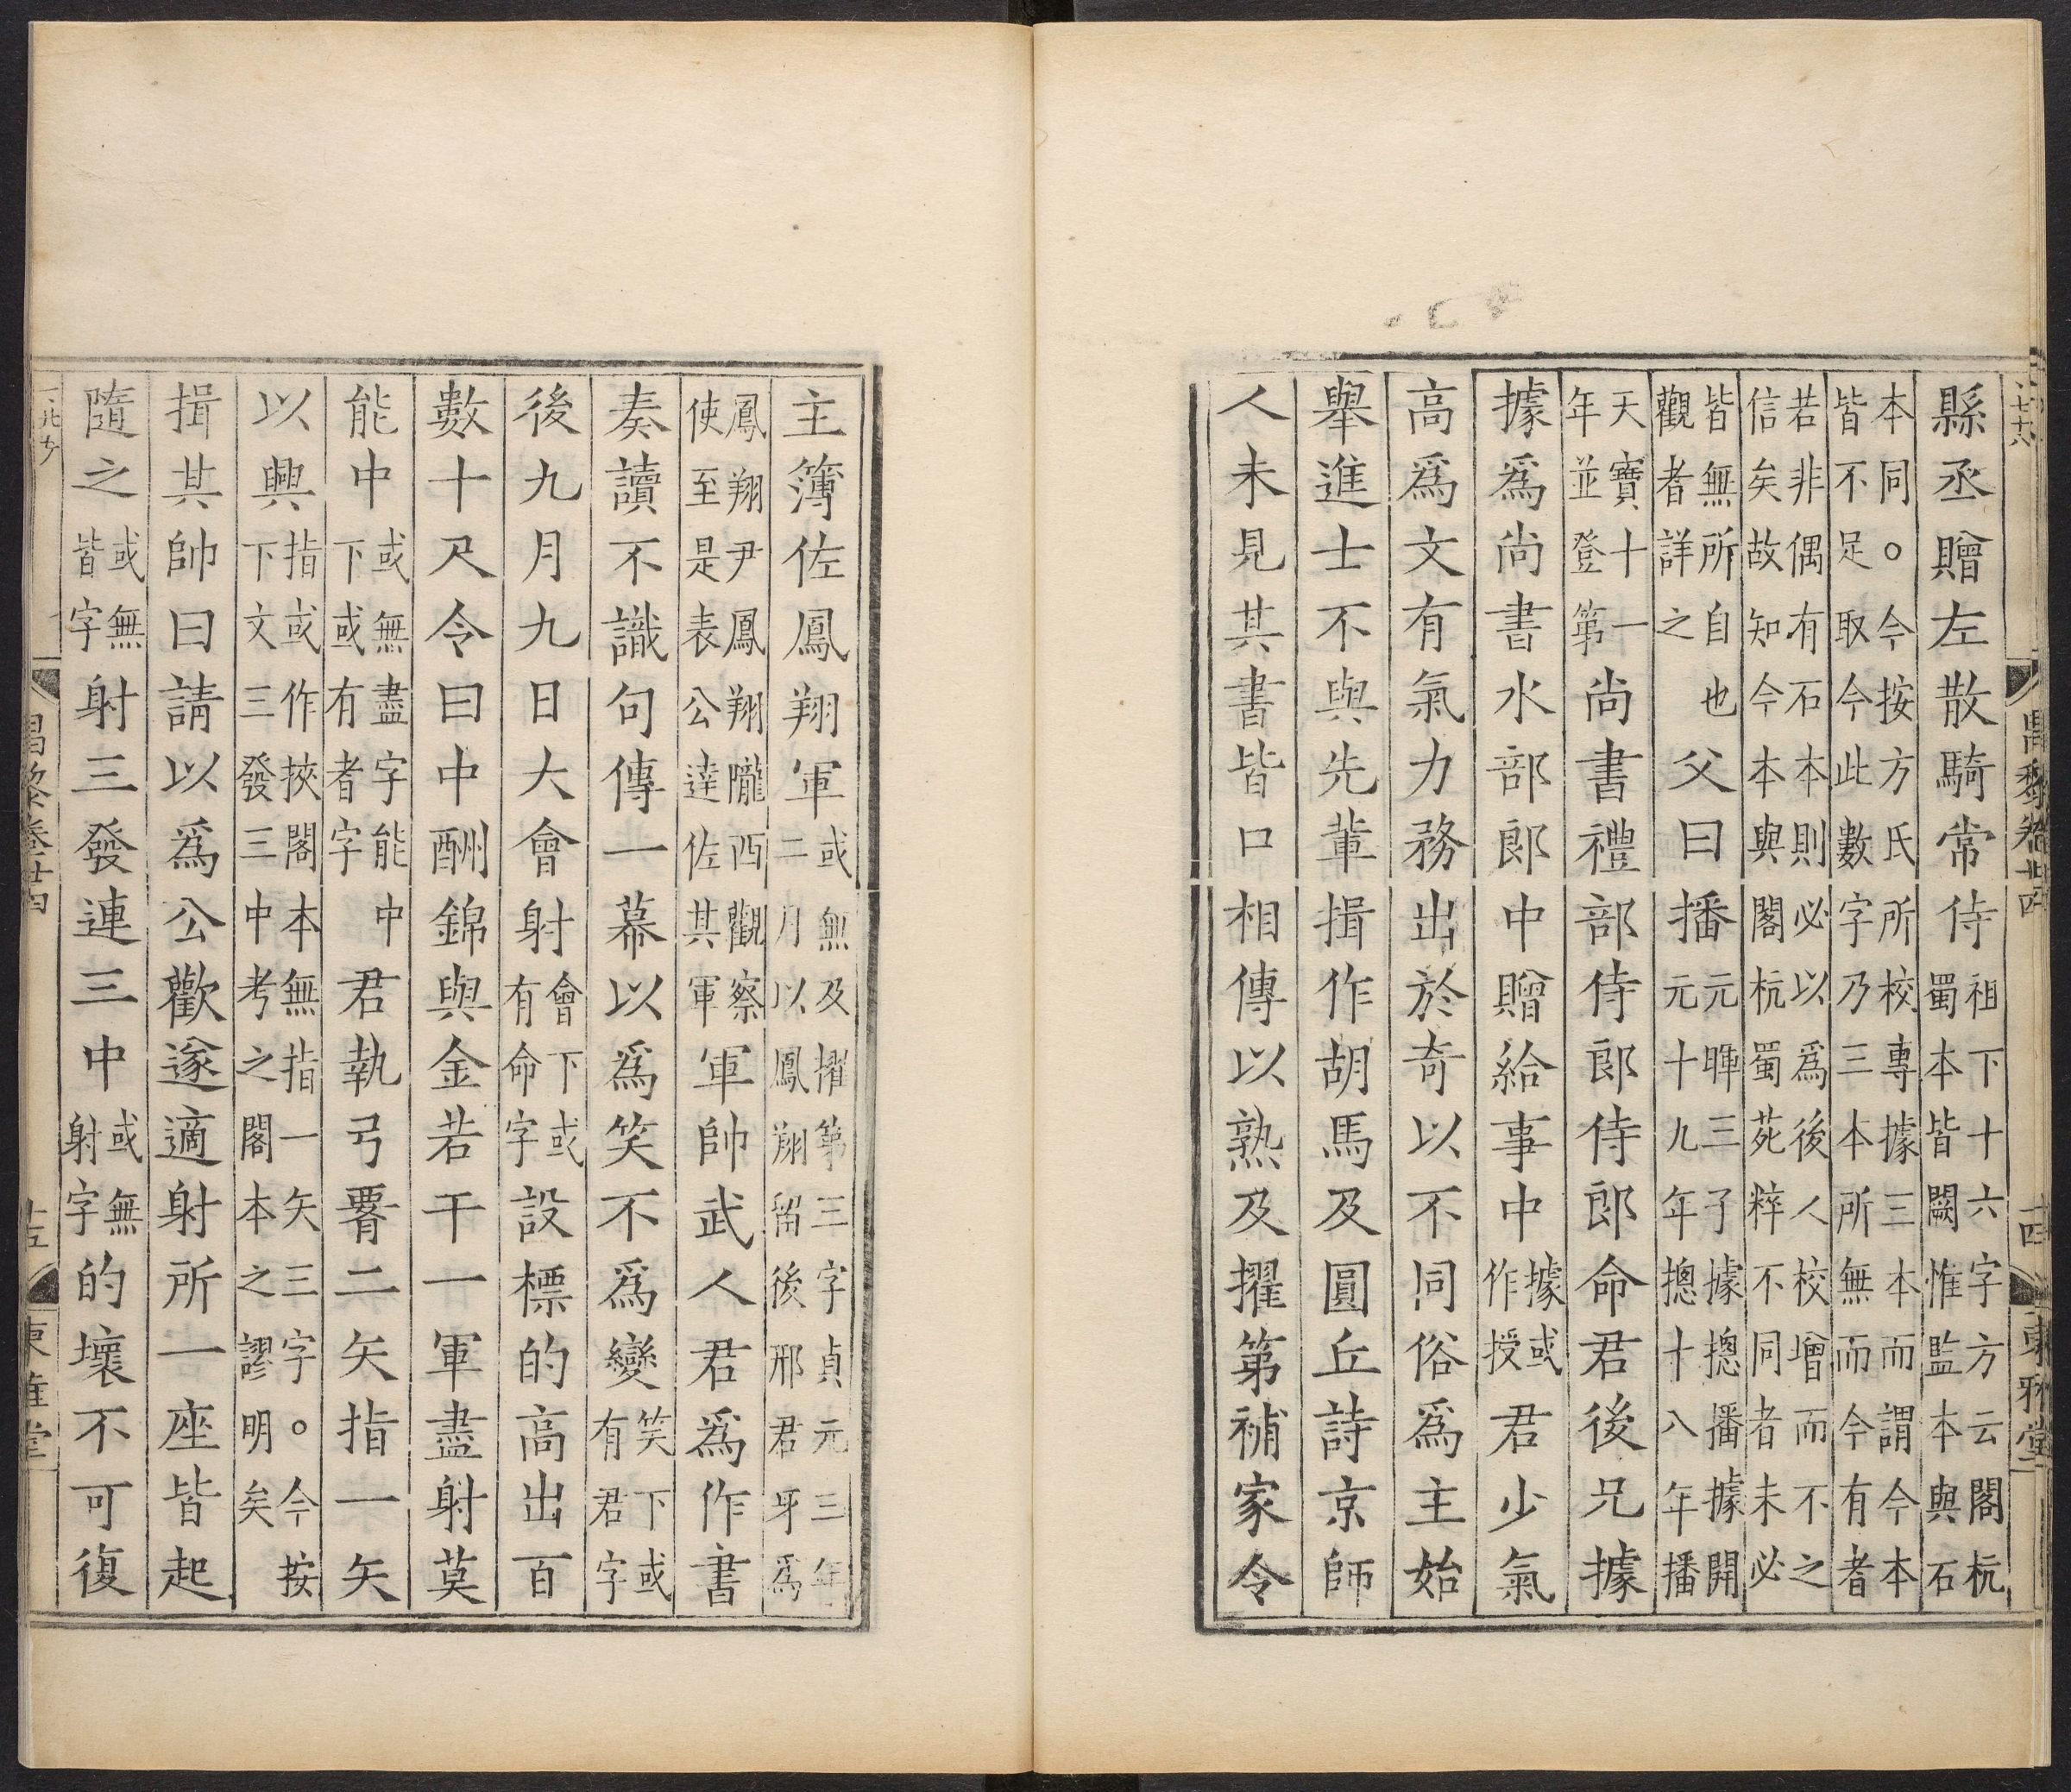 縣丞贈左散騎常侍祖下十六字方云閣杭蜀本皆闕惟監本與石
本同。今按方氏所校專據三本而謂今本皆不足取今此數字乃三本所無而今有者
若非偶有石本則必以爲後人校增而不之信矣故知今本與閣杭蜀苑粹不同者未必
皆無所自也觀者詳之父曰播元暉三子據摠播據開元十九年摠十八年播
天寶十一年並登第尚書禮部侍郎侍郎命君後兄據
據爲尚書水部郎中贈給事中據或作授君少氣
高爲文有氣力務出於奇以不同俗爲主始
舉進士不與先輩揖作胡馬及圓丘詩京師
人未見其書皆口相傳以熟及擢第補家令
昌黎卷廿四
十四
東雅堂
主簿佐鳳翔軍或無及擢第三字貞元三年二月以鳳翔留後邢君牙爲
鳳翔尹鳳翔隴西觀察使至是表公達佐其軍軍帥武人君爲作書
奏讀不識句傳一幕以爲笑不爲變笑下或有君字
後九月九日大會射會下或有命字設標的高出百
數十尺令曰中酬錦與金若干一軍盡射莫
能中或無盡字能中下或有者字君執弓腰二矢指一矢
以興指或作挾閣本無指一矢三字。今按下文三發三中考之閣本之謬明矣
揖其帥曰請以爲公歡遂適射所一座皆起
隨之或無皆字射三發連三中或無射字的壞不可復
昌黎卷廿四
十五
東雅堂